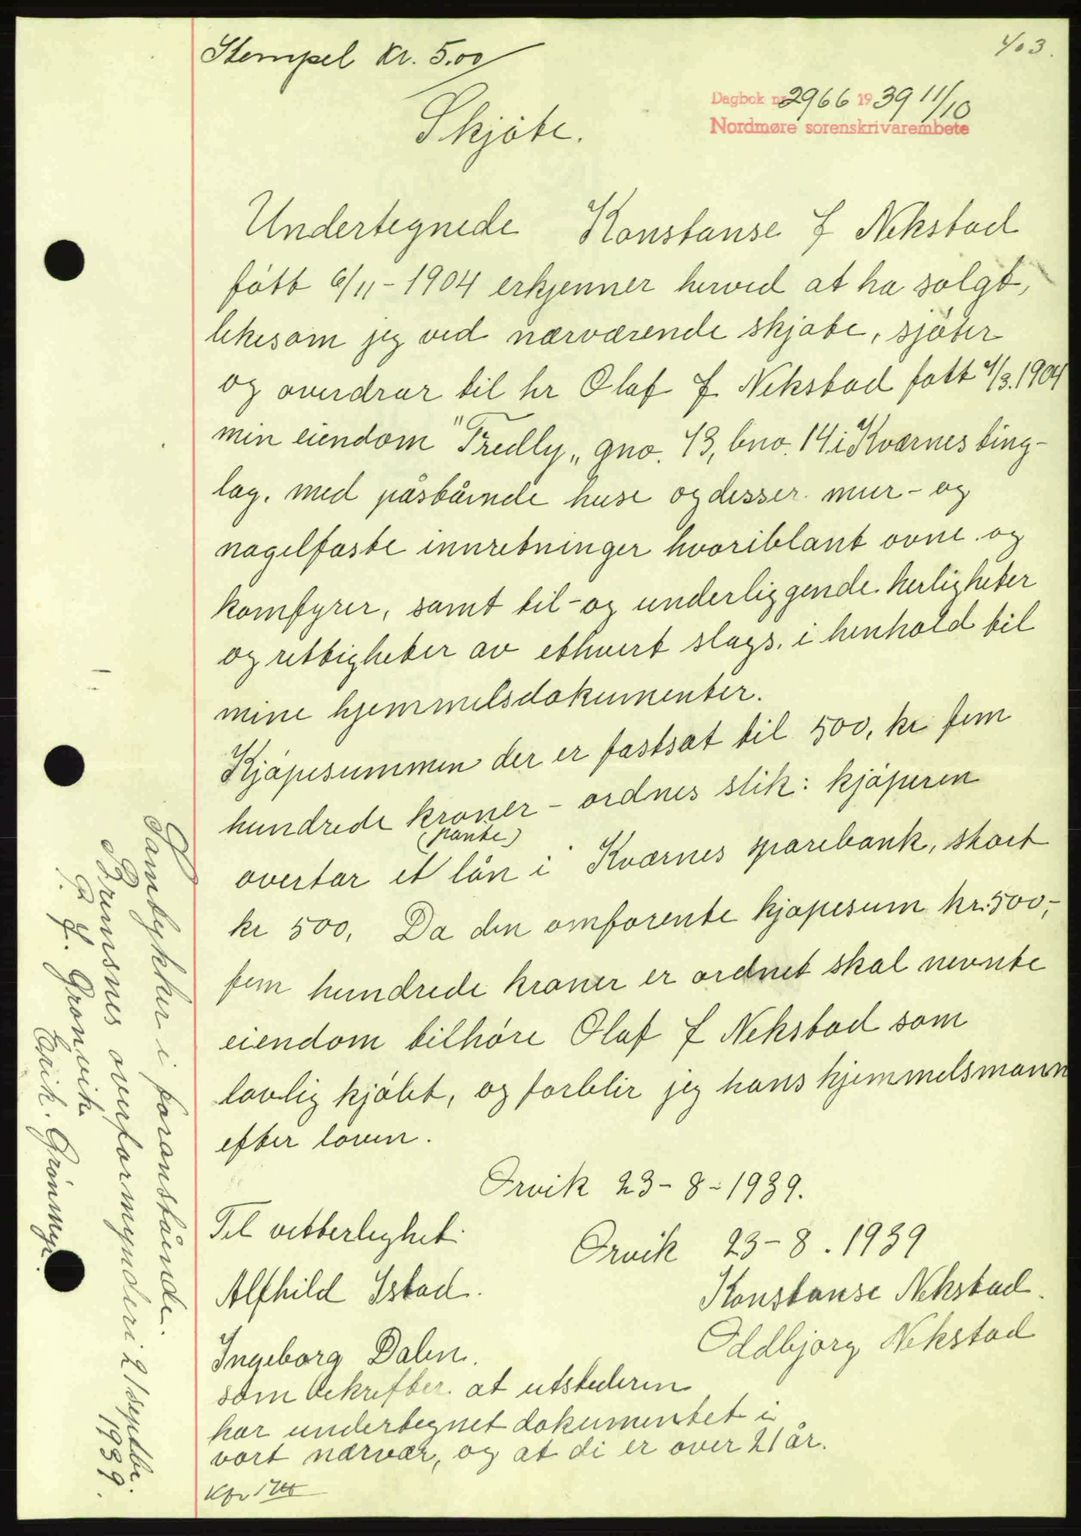 Stempel kr. 5.00
403.
Dagbok nr. 2966 1939 11/10
Nordmøre sorenskrivarembete
Skjøte.
Undertegnede Konstanse J Nekstad
født 6/11-1904 erkjenner herved at ha solgt,
likesom jeg ved nærværende skjøte, sjøter
og overdrar til hr Olaf J. Nekstad født 4/3.1904
min eiendom "Tredly„ gno. 43, bno. 14 i Kvernes ting-
lag. med påståënde huse og desser mur- og
nagelfaste innretninger hvoriblant ovne og
komfyrer, samt til- og underliggende herligheter
og rettigheter av ethvert slags. i henhold til
mine hjemmelsdokumenter.
Kjøpesummen der er fastsat til 500, kr fem
hundrede kroner – ordnes slik: kjøperen
(pante)
overtar et lån i Kværnes sparebank, stort
kr 500, Da den omforente kjøpesum kr. 500,-
fem hundrede kroner er ordnet skal nevnte
eiendom tilhøre Olaf J Nekstad som
lovlig kjøbt, og forblir jeg hans hjemmelsmann
efter loven.
Orvik 23-8-1939.
Til vitterlighet.
Orvik 23-8.1939
Alfhild Istad.
Konstanse Nekstad.
Ingeborg Dalen.
Oddbjørg Nekstad
som bekrefter at utstederen
har undertegnet dokumentet i
vort nærvær, og at di er over 21 år.
Samtykker i foranstående.
Bremsnes overformynderi 21 septbr.
1939.
P. J. Gronvik
Erik. Grønmyr.